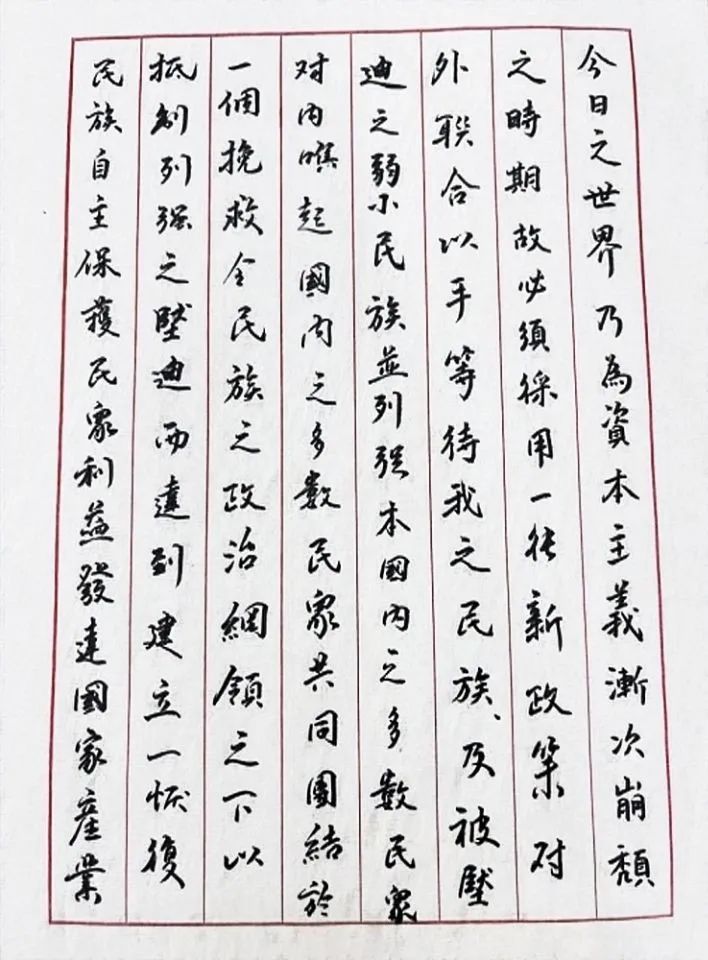 今日之世界乃為資本主義漸次崩頹
之時期故必須採用一種新政策对
外聯合以平等待我之民族、及被壓
迪之弱小民族並列强本國内之多數民衆
对内嗅起國内之多數民衆共同團結於
一個挽救全民族之政治綱領之下以
抵制列强之壓迪而達到建立一恢復
民族自主保護民衆利益發達國家産業